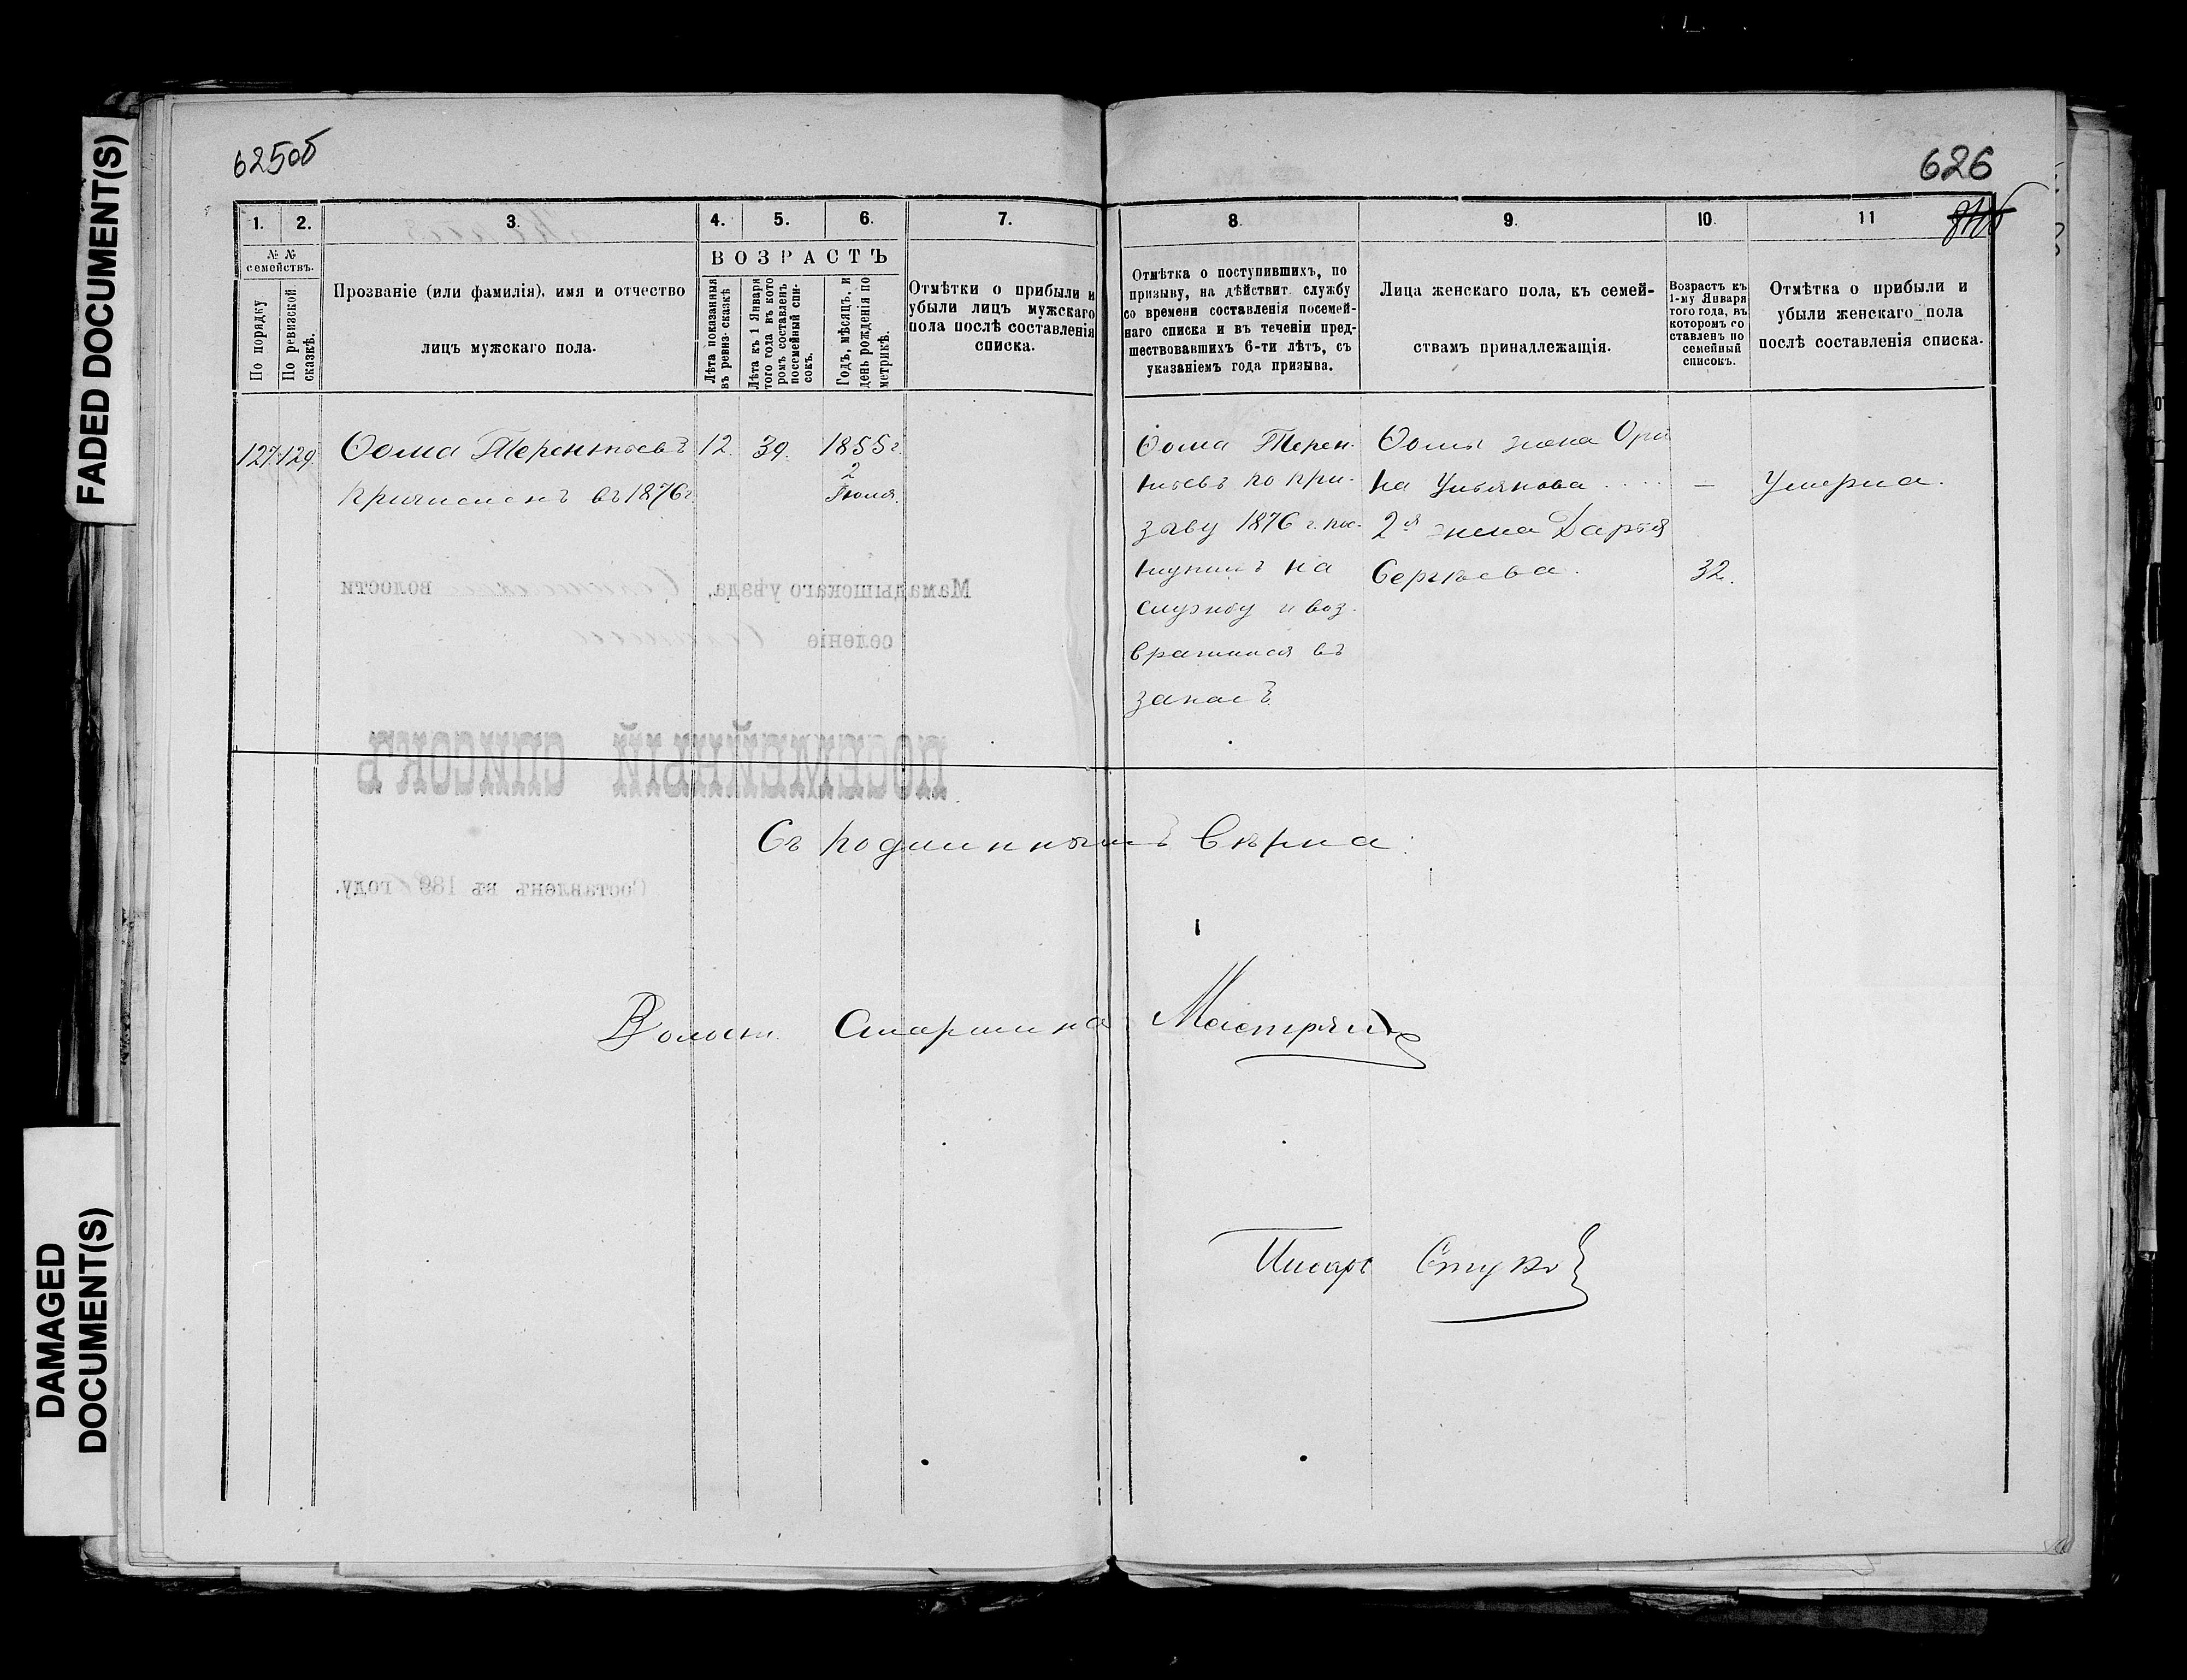 FADED DOCUMENT(S)
DAMAGED
DOCUMENT(S)
625об
1. 2. 3. 4. 5. 6. 7.
№ №
семействъ.
По порядку
По ревизской
сказкѣ.
Прозваніе (или фамилія), имя и отчество
лицъ мужскаго пола.
ВОЗРАСТЪ
Лѣта показанныя
въ ревиз. сказкѣ
Лѣта къ 1 Января
того года въ кото
ромъ составленъ
посемейный спи-
сокъ.
Годъ, мѣсяцъ, и
день рожденія по
метрикѣ.
Отмѣтки о прибыли и
убыли лицъ мужскаго
пола послѣ составленія
списка.
127. 129. Ѳома Терентьевъ 12. 39. 1855 г.
2
Причисленъ въ 1876 г. Іюля.
Мамадышскаго уѣзда, волости
селеніе
ПОСЕМЕЙНЫЙ СПИСОКЪ
Составленъ въ 189 году.
626
8. 9. 10. 11
Отмѣтка о поступившихъ, по
призыву, на дѣйствит. службу
со времени составленія посемей-
наго списка и въ теченіи пред-
шествовавшихъ 6-ти лѣтъ, съ
указаніемъ года призыва.
Лица женскаго пола, къ семей-
ствамъ принадлежащія.
Возрастъ къ
1-му Января
того года, въ
которомъ со
ставленъ по
семейный
списокъ.
Отмѣтка о прибыли и
убыли женскаго пола
послѣ составленія списка.
Ѳома Терен-
тьевъ по при-
зыву 1876 г. пос-
тупилъ на
службу и воз-
вратился въ
запасъ.
Ѳомы жена Ори
на Ульянова . . . . — Умерла.
2я жена Дарья
Сергѣева. 32.
Съ подлиннымъ вѣрна:
Волостн. Старшина
Писарь